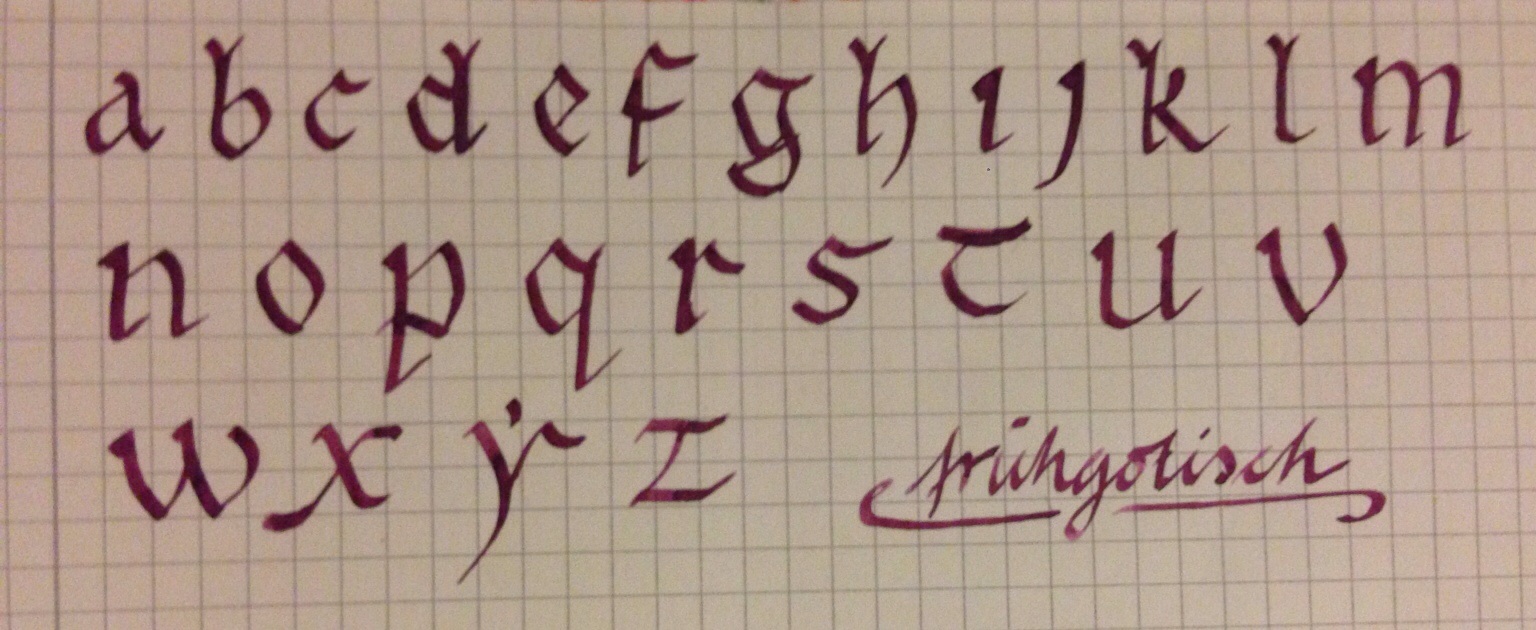 a b c d e f g h ı ȷ k l m
n o p q r s t u v
w x ẏ z frühgotisch